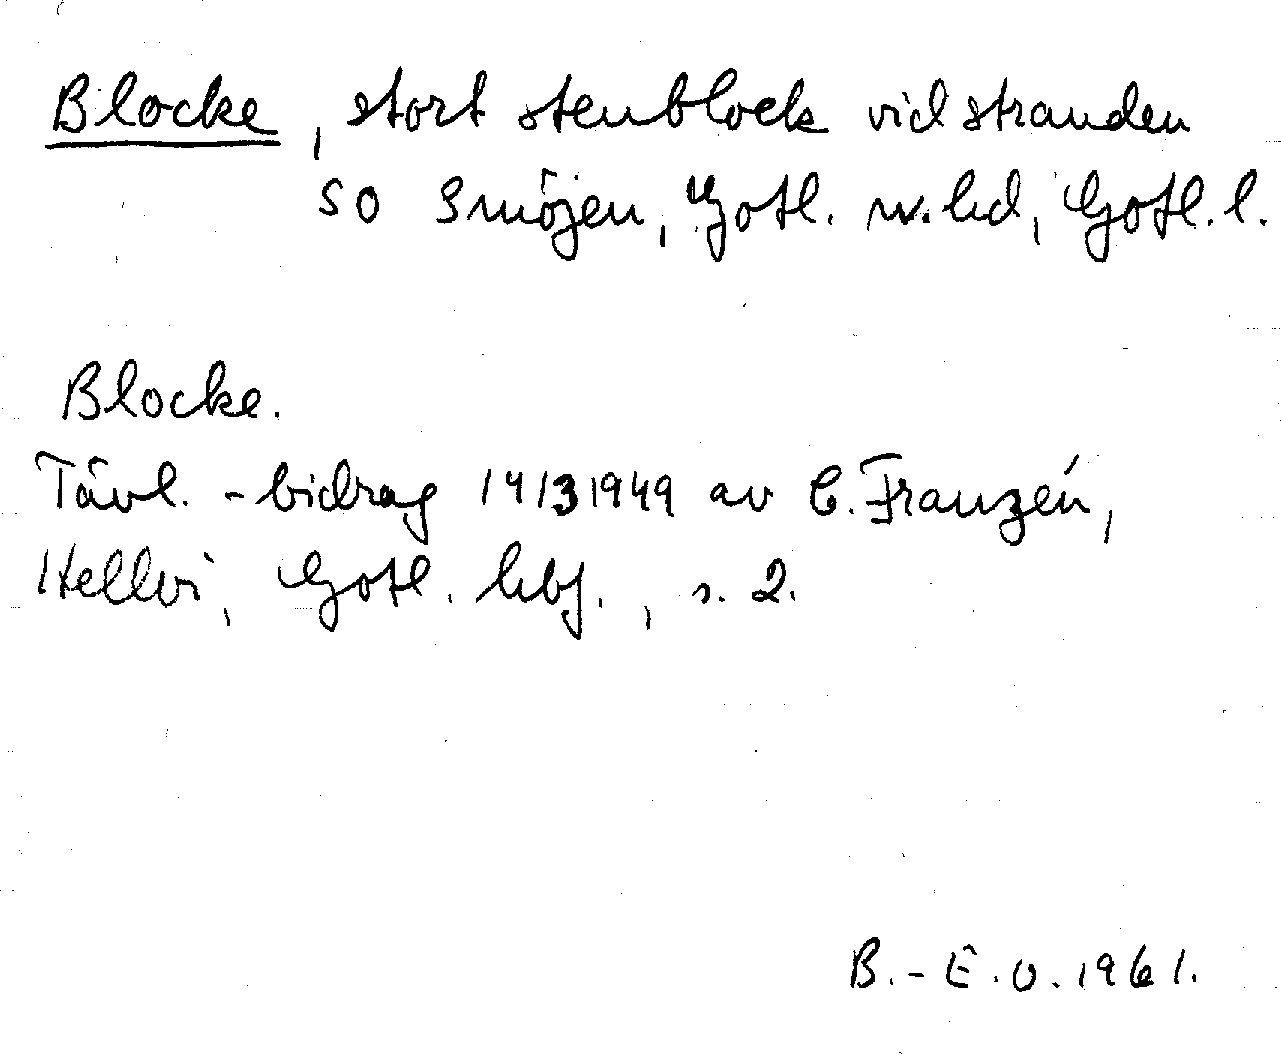 Blocke, stort stenblock vid stranden
SO Smöjen, Gotl. n. hd, Gotl. l.
Blocke.
Tävl. - bidrag 14/3 1949 av C. Franzén,
Hellvi, Gotl. hbf., s. 2.
B.-E.O. 1961.